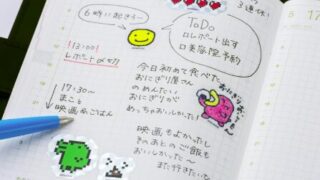 3週休い
6時に起きる〜
ToDo
ロレポート出す
ロ美容院予約
13:00!
レポート〆切
17:30〜
まこと
映画&ごはん
今日初めて食べた
おにぎり屋さん
のめんたい
おにぎりが
めっちゃおいしかった!
映画もよかったし
そのあとのご飯も
おいしかった〜
また行きたいな
17